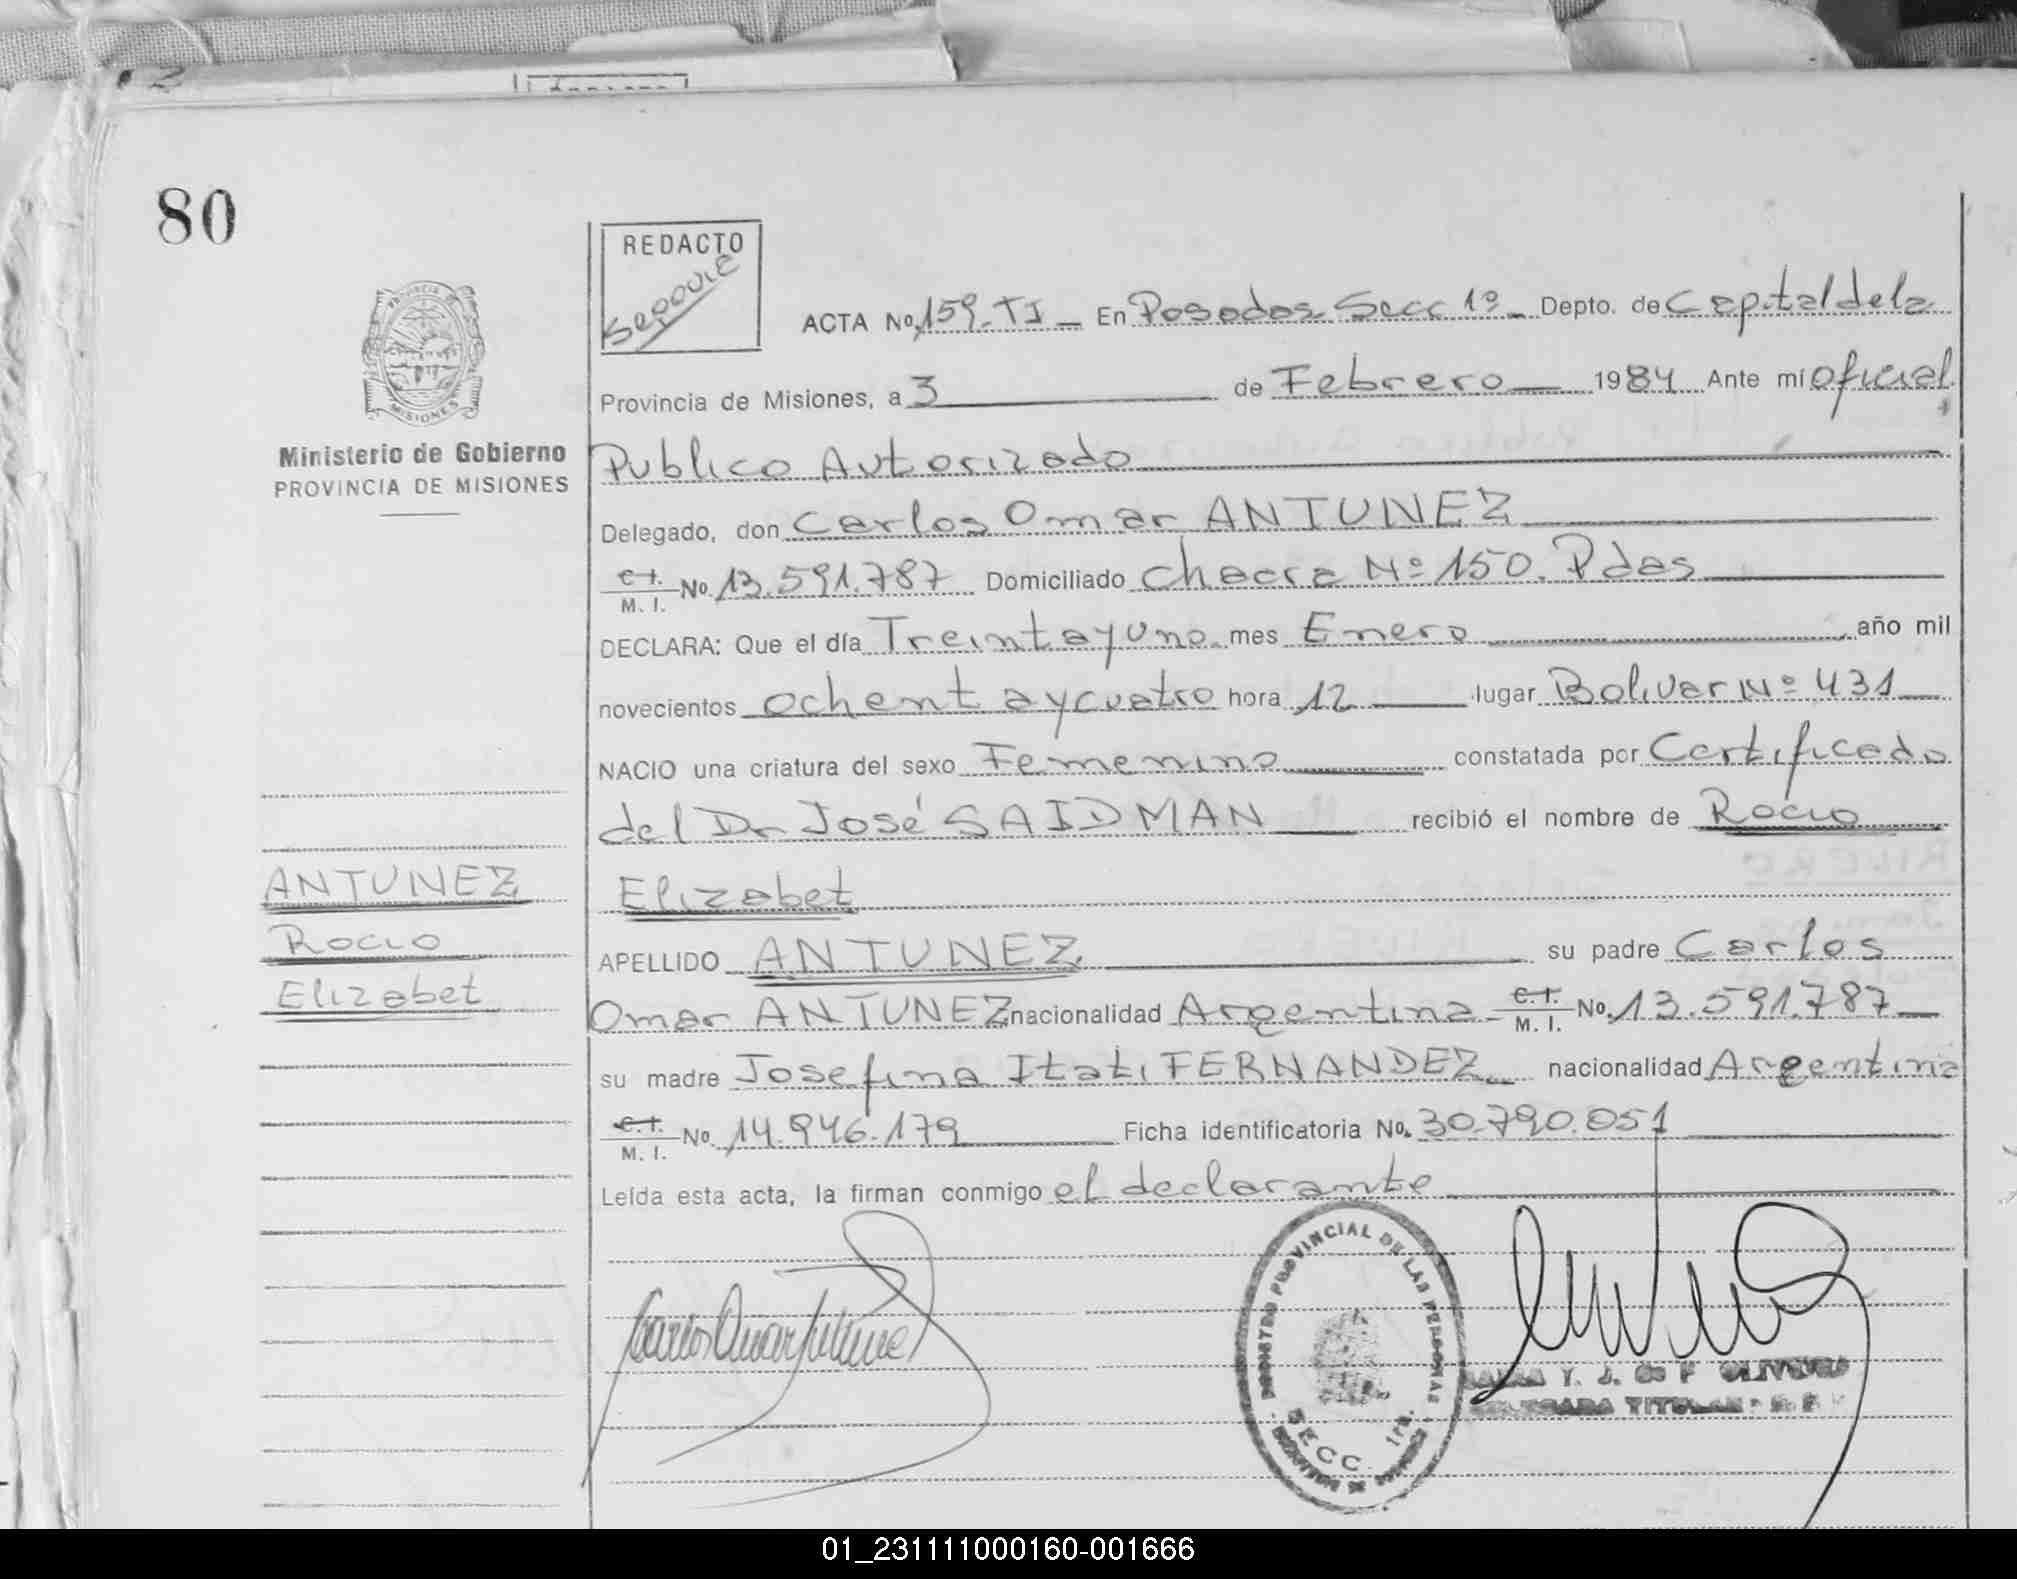 80
REDACTO
ACTA No 159-TI En Posadas Secc 1º Depto. de Capital de la
Provincia de Misiones, a 3 de Febrero 1984 Ante mi oficial
Ministerio de Gobierno
PROVINCIA DE MISIONES
Publico Autorizado
Delegado, don Carlos Omar ANTUNEZ
C.I. M. I. No 13.591.787 Domiciliado Chacra Nº 150. Pdas
DECLARA: Que el día Treinta y uno mes Enero año mil
novecientos ochenta y cuatro hora 12 lugar Bolivar Nº 431
NACIO una criatura del sexo Femenino constatada por Certificado
del Dr José SAIDMAN recibió el nombre de Rocio
Elizabet
APELLIDO ANTUNEZ su padre Carlos
Omar ANTUNEZ nacionalidad Argentina C.I. M. I. No. 13.591.787
su madre Josefina Itati FERNANDEZ nacionalidad Argentina
C.I. M. I. No 14.946.179 Ficha identificatoria No. 30.790.051
Leída esta acta, la firman conmigo el declarante
ANTUNEZ
Rocio
Elizabet
Carlos Omar Antunez
PROVINCIAL DE LAS PERSONAS
SECC. 1ra.
Y. J. DE F. OLIVEURS
TITULAR
01_231111000160-001666